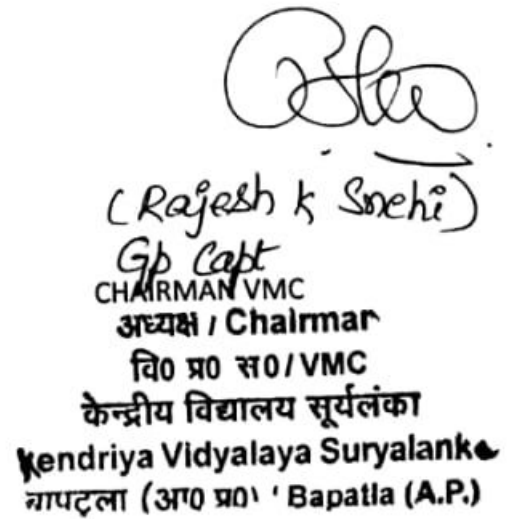 (Rajesh K Snehi)
Gp Capt
CHAIRMAN VMC
अध्यक्ष / Chairman
वि0 प्र0 स0 / VMC
केन्द्रीय विद्यालय सूर्यलंका
Kendriya Vidyalaya Suryalanka
बापट्ला (आ0 प्र0) Bapatla (A.P.)